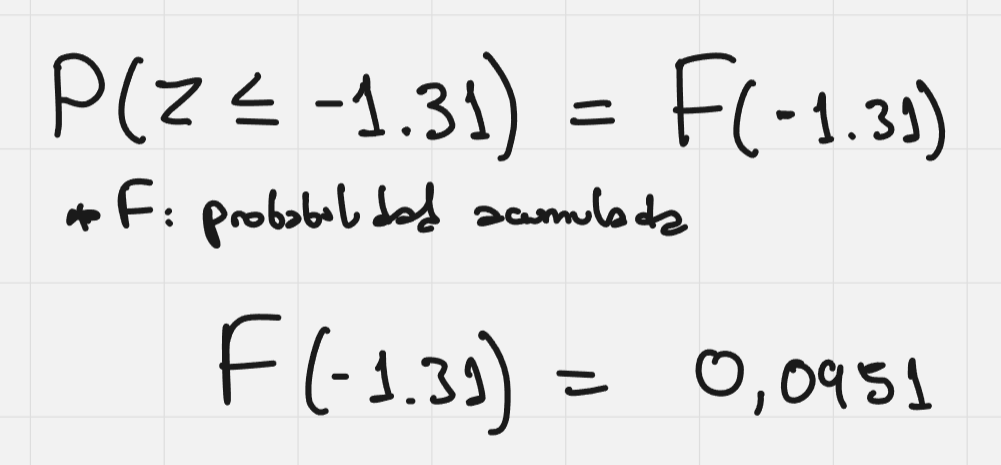 P(Z ≤ -1.31) = F(-1.31)
* F: probabilidad acumulada
F(-1.31) = 0,0951